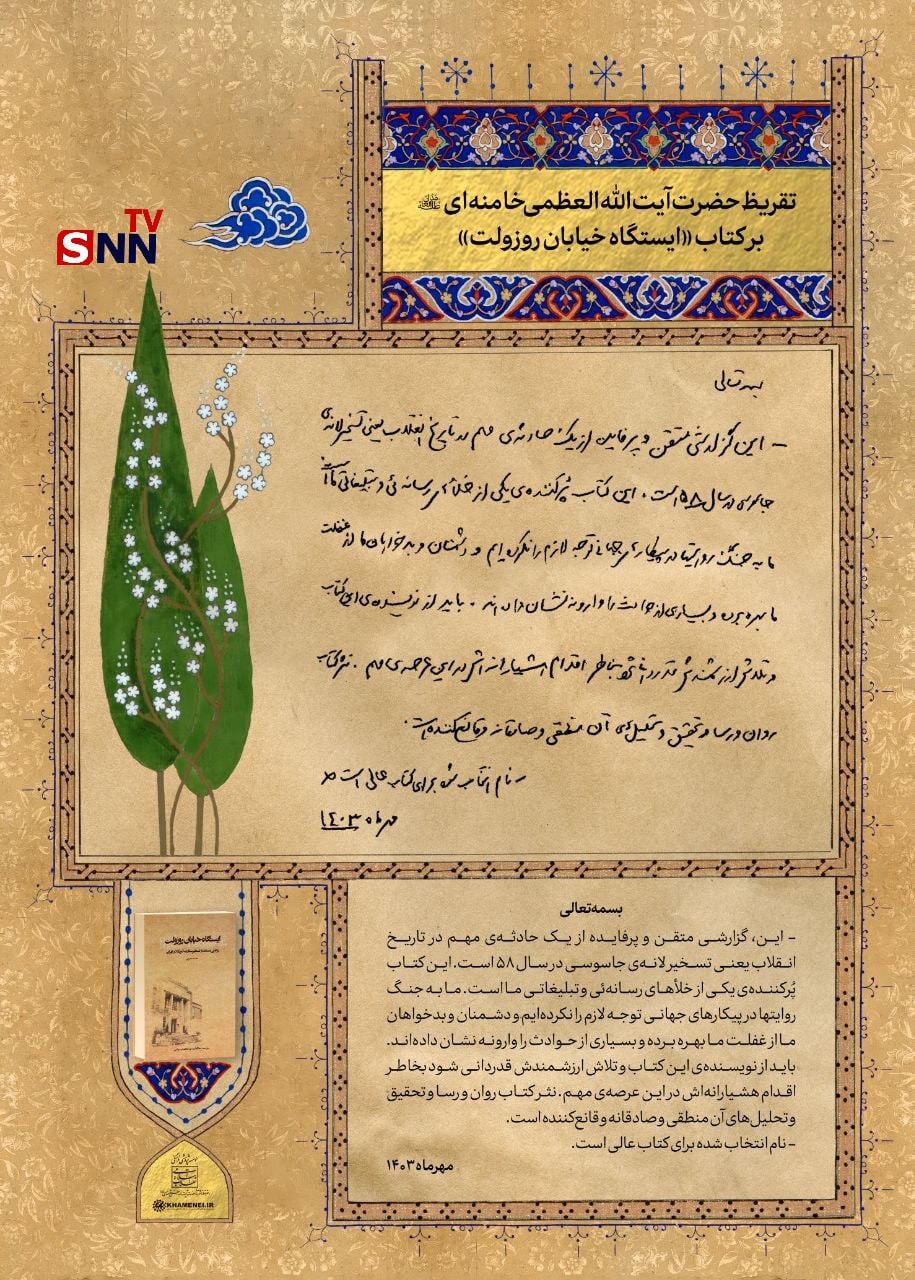 تقریظ حضرت آیت الله العظمی خامنه ای
بر کتاب «ایستگاه خیابان روزولت»
SNN TV
بسمه تعالی
- این گزارشی متقن و پرفایده از یک حادثه‌ی مهم در تاریخ انقلاب یعنی تسخیر لانه‌ی
جاسوسی در سال ۵۸ است. این کتاب پُرکننده‌ی یکی از خلأهای رسانه‌ئی و تبلیغاتی ما است
ما به جنگ روایتها در پیکارهای جهانی توجه لازم را نکرده‌ایم و دشمنان و بدخواهان ما از غفلت
ما بهره برده و بسیاری از حوادث را وارونه نشان داده‌اند. باید از نویسنده‌ی این کتاب
و تلاش ارزشمندش قدردانی شود بخاطر اقدام هشیارانه‌اش در این عرصه‌ی مهم. نثر کتاب
روان و رسا و تحقیق و تحلیل‌های آن منطقی و صادقانه و قانع کننده است.
- نام انتخاب شده برای کتاب عالی است
مهرماه ۱۴۰۳
بسمه‌تعالی
- این، گزارشی متقن و پرفایده از یک حادثه‌ی مهم در تاریخ
انقلاب یعنی تسخیر لانه‌ی جاسوسی در سال ۵۸ است. این کتاب
پُرکننده‌ی یکی از خلأهای رسانه‌ئی و تبلیغاتی ما است. ما به جنگ
روایتها در پیکارهای جهانی توجه لازم را نکرده‌ایم و دشمنان و بدخواهان
ما از غفلت ما بهره برده و بسیاری از حوادث را وارونه نشان داده اند.
باید از نویسنده‌ی این کتاب و تلاش ارزشمندش قدردانی شود بخاطر
اقدام هشیارانه‌اش در این عرصه‌ی مهم. نثر کتاب روان و رسا و تحقیق
و تحلیل‌های آن منطقی و صادقانه و قانع‌کننده است.
- نام انتخاب شده برای کتاب عالی است.
مهرماه ۱۴۰۳
ایستگاه خیابان روزولت
KHAMENEI.IR